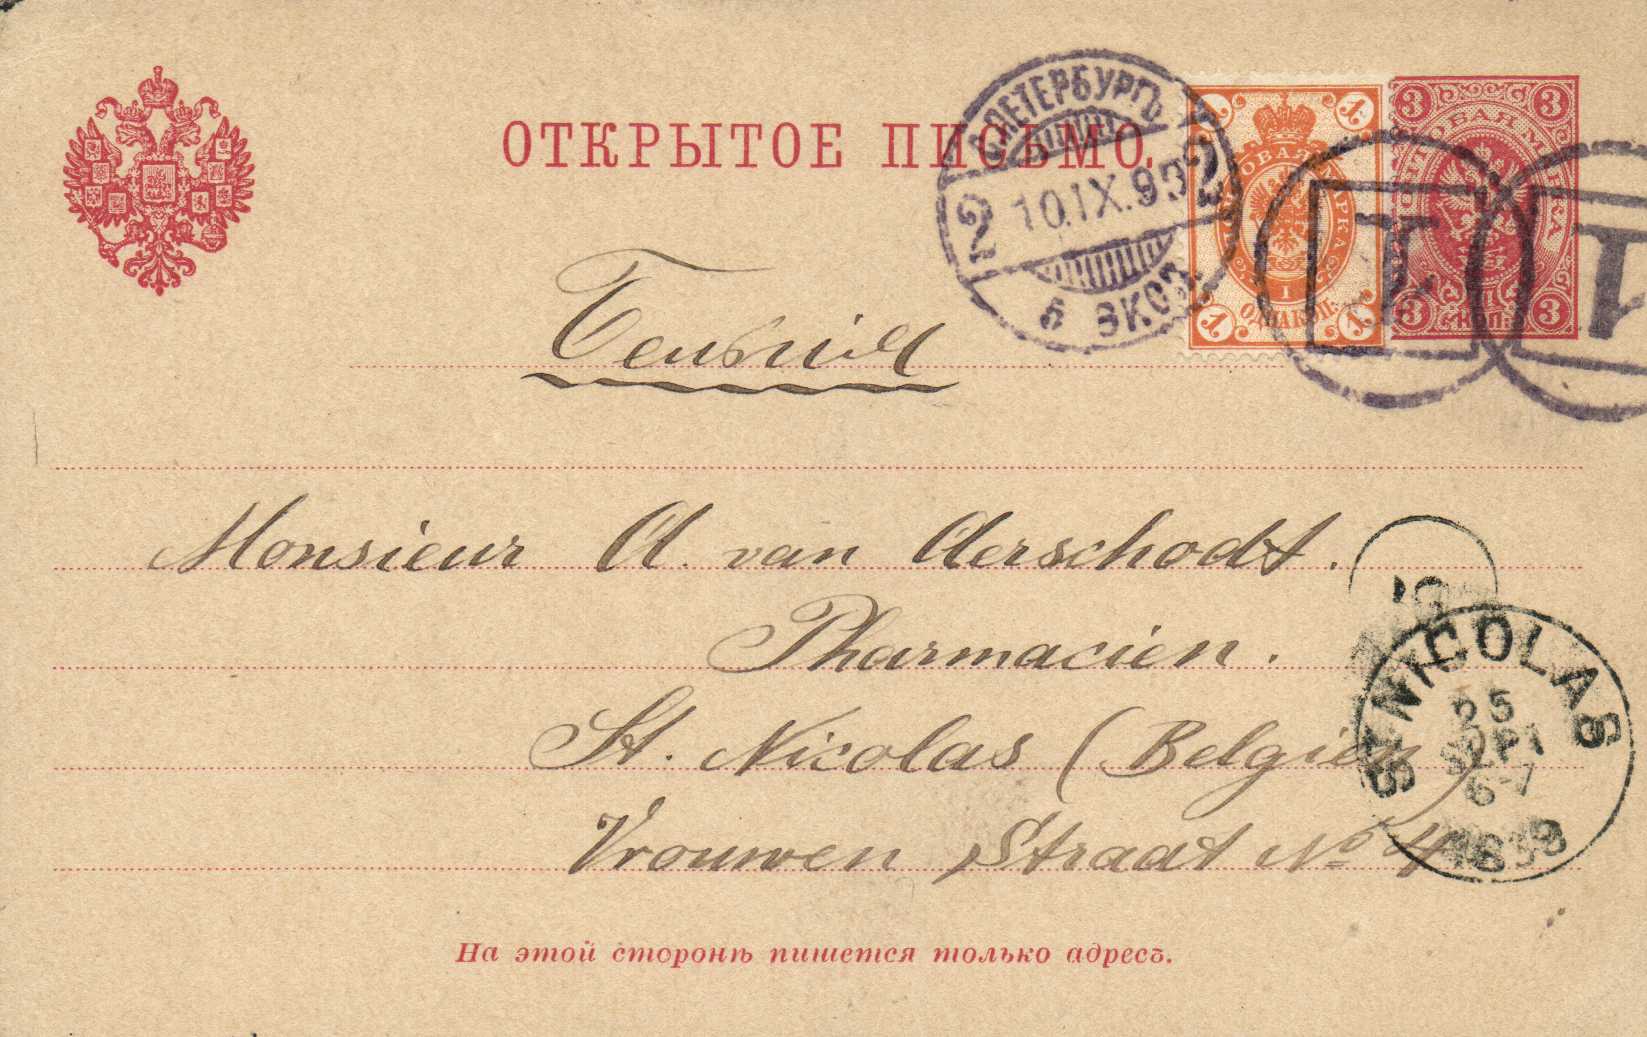 ОТКРЫТОЕ ПИСЬМО.
С.ПЕТЕРБУРГЪ
2 10.IX.93 2
5 ЭКСП.
1 1
ПОЧТОВАЯ МАРКА
1
ОДНА КОП.
1 1
3 3
ПОЧТОВАЯ МАРКА
3 КОП. 3
1
1
Бельгия
Monsieur A. van Aerschodt.
Pharmacien.
St. Nicolas (Belgien)
Vrouwen Straat No 4
St NICOLAS
SEPT
6-7
На этой сторонѣ пишется только адресъ.